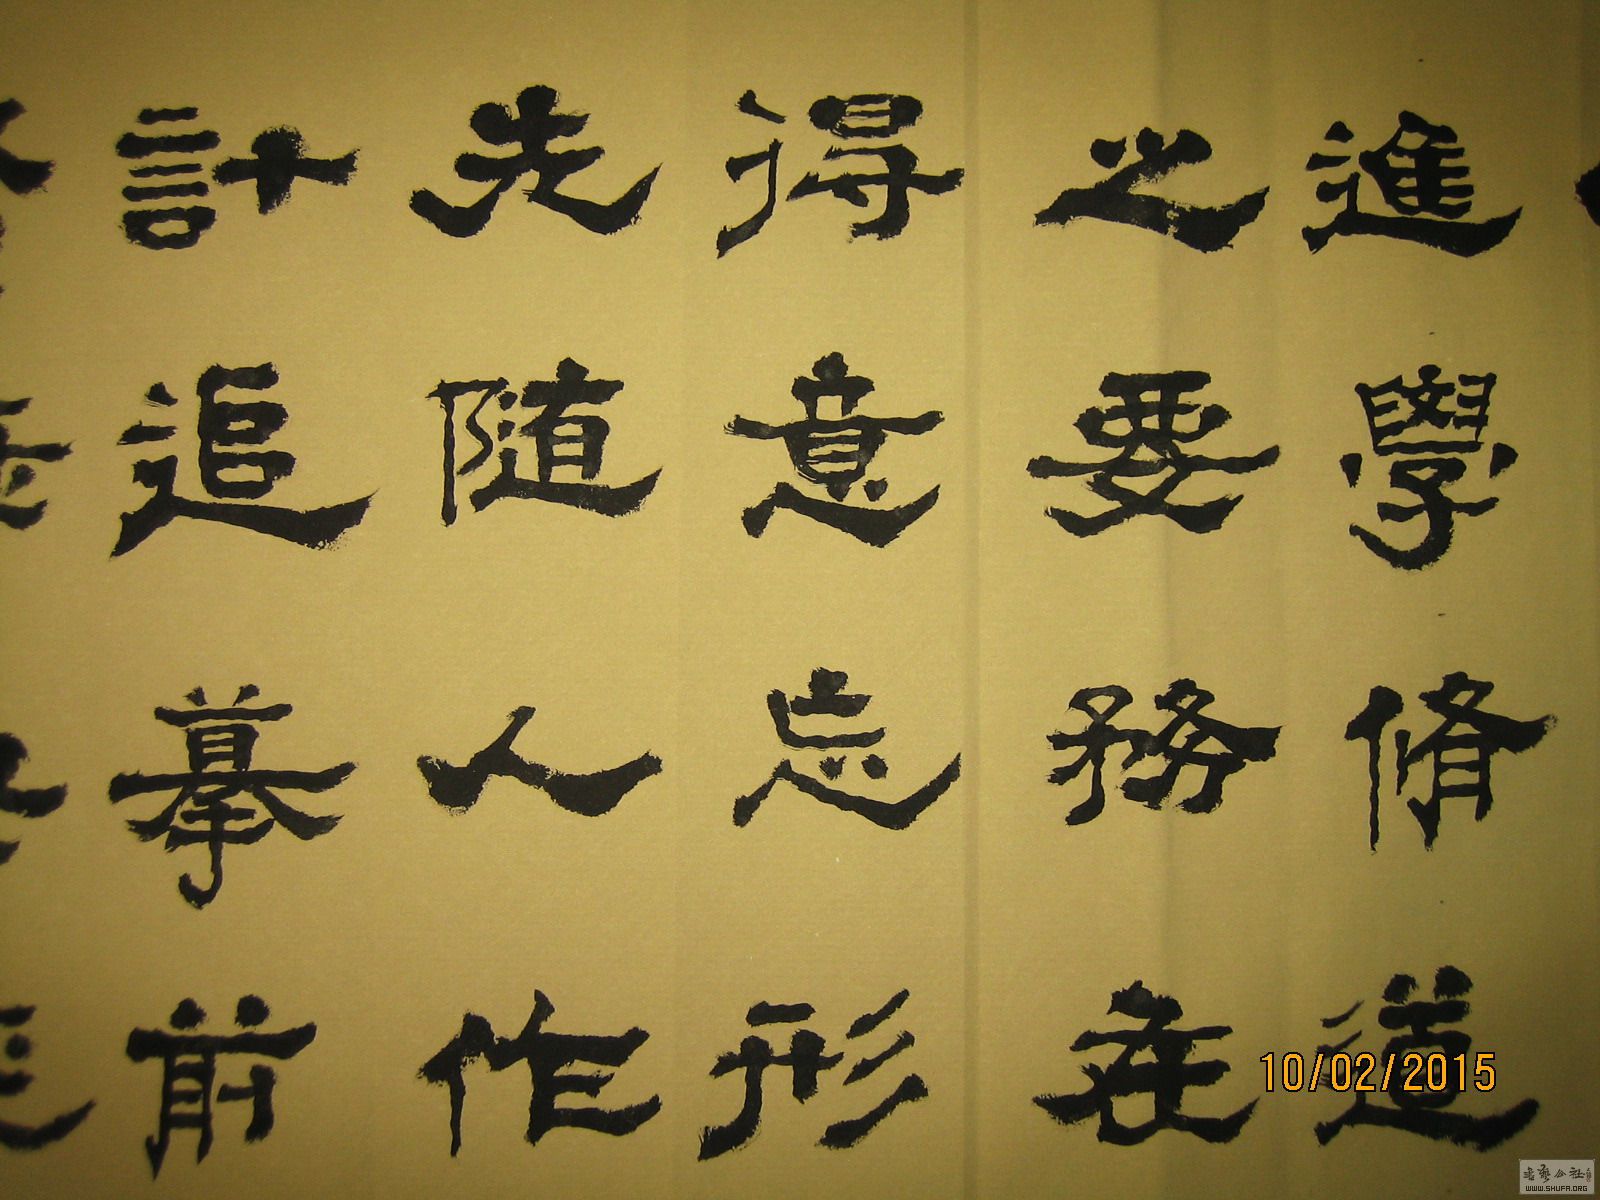 進學脩道
之要務在
得意忘形
先随人作
計追摹前
10/02/2015
書藝公社
WWW.SHUFA.ORG